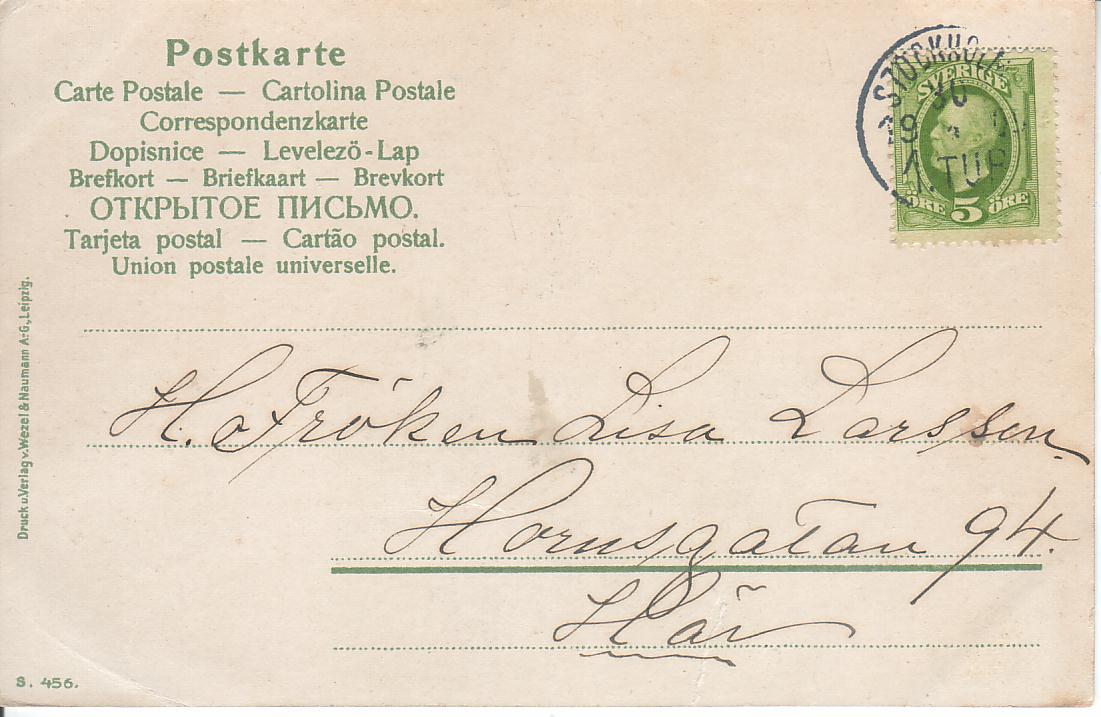 Postkarte
Carte Postale — Cartolina Postale
Correspondenzkarte
Dopisnice — Levelező-Lap
Brefkort — Briefkaart — Brevkort
ОТКРЫТОЕ ПИСЬМО.
Tarjeta postal — Cartão postal.
Union postale universelle.
STOCKHOLM
30
1.TUR
SVERIGE
ÖRE 5 ÖRE
Druck u. Verlag v. Wezel & Naumann A-G., Leipzig.
H. o Fröken Lisa Larsson
Hornsgatan 94.
Här
S. 456.